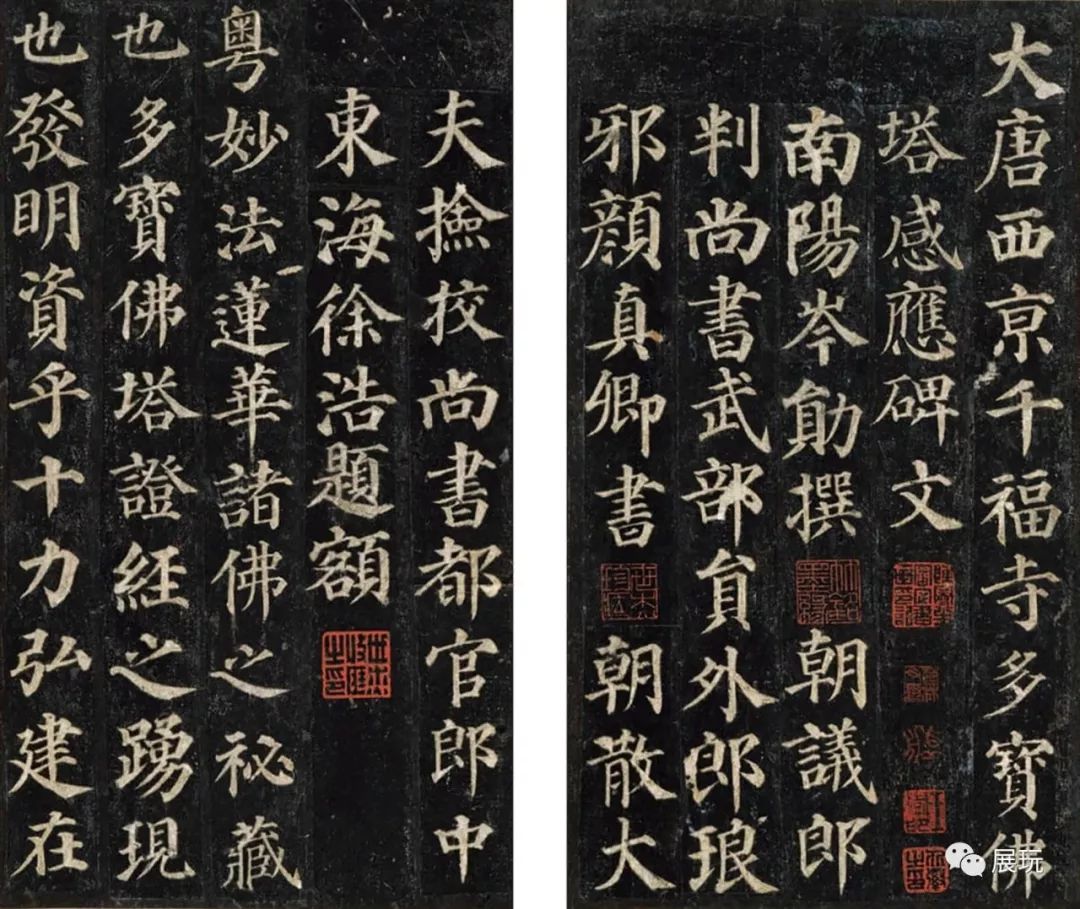 大唐西亰千福寺多寶佛
塔感應碑文
南陽岑勛撰 朝議郎
判尚書武部貟外郎琅
邪顔真卿書 朝散大
夫撿挍尚書都官郎中
東海徐浩題額
粵妙法蓮華諸佛之祕藏
也多寶佛塔證經之踴現
也發明資乎十力弘建在
展玩